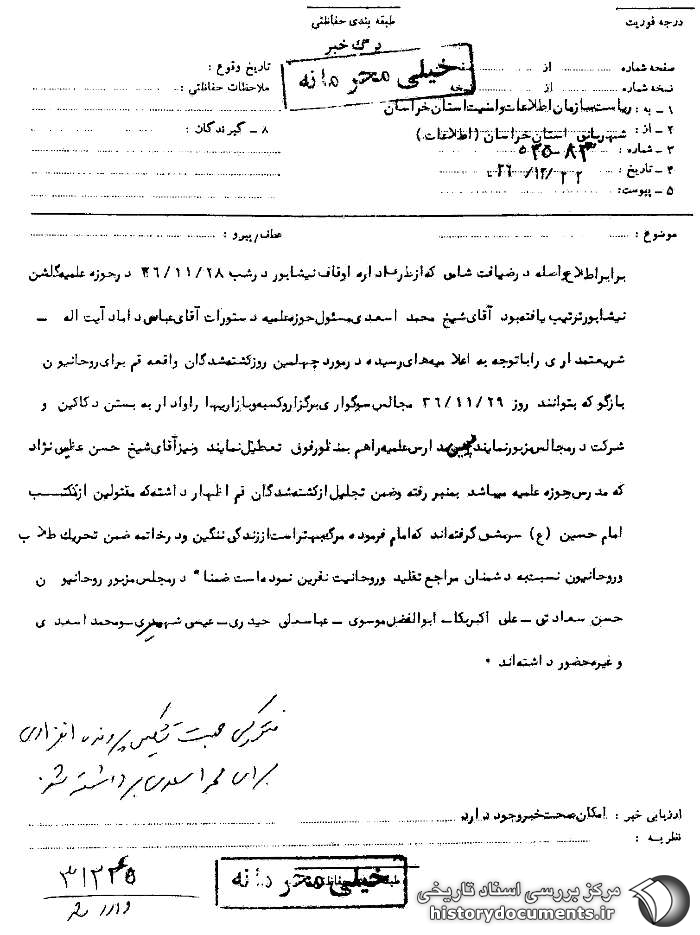 درجه فوریت
طبقه بندی حفاظتی
برگ خبر
خیلی محرمانه
صفحه شماره از صفحه
تاریخ وقوع :
نسخه شماره از نسخه
ملاحظات حفاظتی :
۱ ـ به : ریاست سازمان اطلاعات و امنیت استان خراسان
۲ ـ از : شهربانی استان خراسان (اطلاعات)
۸ ـ گیرندگان :
۳ ـ شماره :
۴ ـ تاریخ : ۲۲ /۱۲/ ۳۶
۵ ـ پیوست :
موضوع :
عطف/پیرو :
برابر اطلاع واصله در ضیافت شامی که از طرف اداره اوقاف نیشابور در شب ۳۶/۱۱/۲۸ در حوزه علمیه گلشن
نیشابور ترتیب یافته بود آقای شیخ محمد اسعدی مسئول حوزه علمیه دستورات آقای عباسی داماد آیت اله ـ
شریعتمداری را با توجه به اعلامیه‌های رسیده در مورد چهلمین روز کشته‌شدگان واقعه قم برای روحانیون
بازگو که بتوانند روز ۳۶/۱۱/۲۹ مجالس سوگواری برگزار و کسبه و بازاریها را وادار به بستن دکاکین و
شرکت در مجالس مزبور نمایند مدارس علمیه را هم بمنظور فوق تعطیل نمایند و نیز آقای شیخ حسن نژاد
که مدرس حوزه علمیه میباشد بمنبر رفته و ضمن تجلیل از کشته‌شدگان قم اظهار داشته که مقتولین از مکتب
امام حسین (ع) سرمشق گرفته‌اند که امام فرموده مرگ بهتر است از زندگی ننگین و در خاتمه ضمن تحریک طلاب
و روحانیون نسبت به دشمنان مراجع تقلید و روحانیت نفرین نموده است ضمنا" در مجلس مزبور روحانیون
حسن سعادتی ـ علی اکبر ـ ابوالفضل موسوی ـ عباسعلی حیدری ـ عیسی ـ و محمد اسعدی
و غیره حضور داشته‌اند .
تشکیل پرونده انفرادی
برای محمد اسعدی برداشته شود.
ارزیابی خبر : امکان صحت خبر وجود دارد
نظریه :
خیلی محرمانه
طبقه بندی حفاظتی
وارده
مرکز بررسی اسناد تاریخی
historydocuments.ir